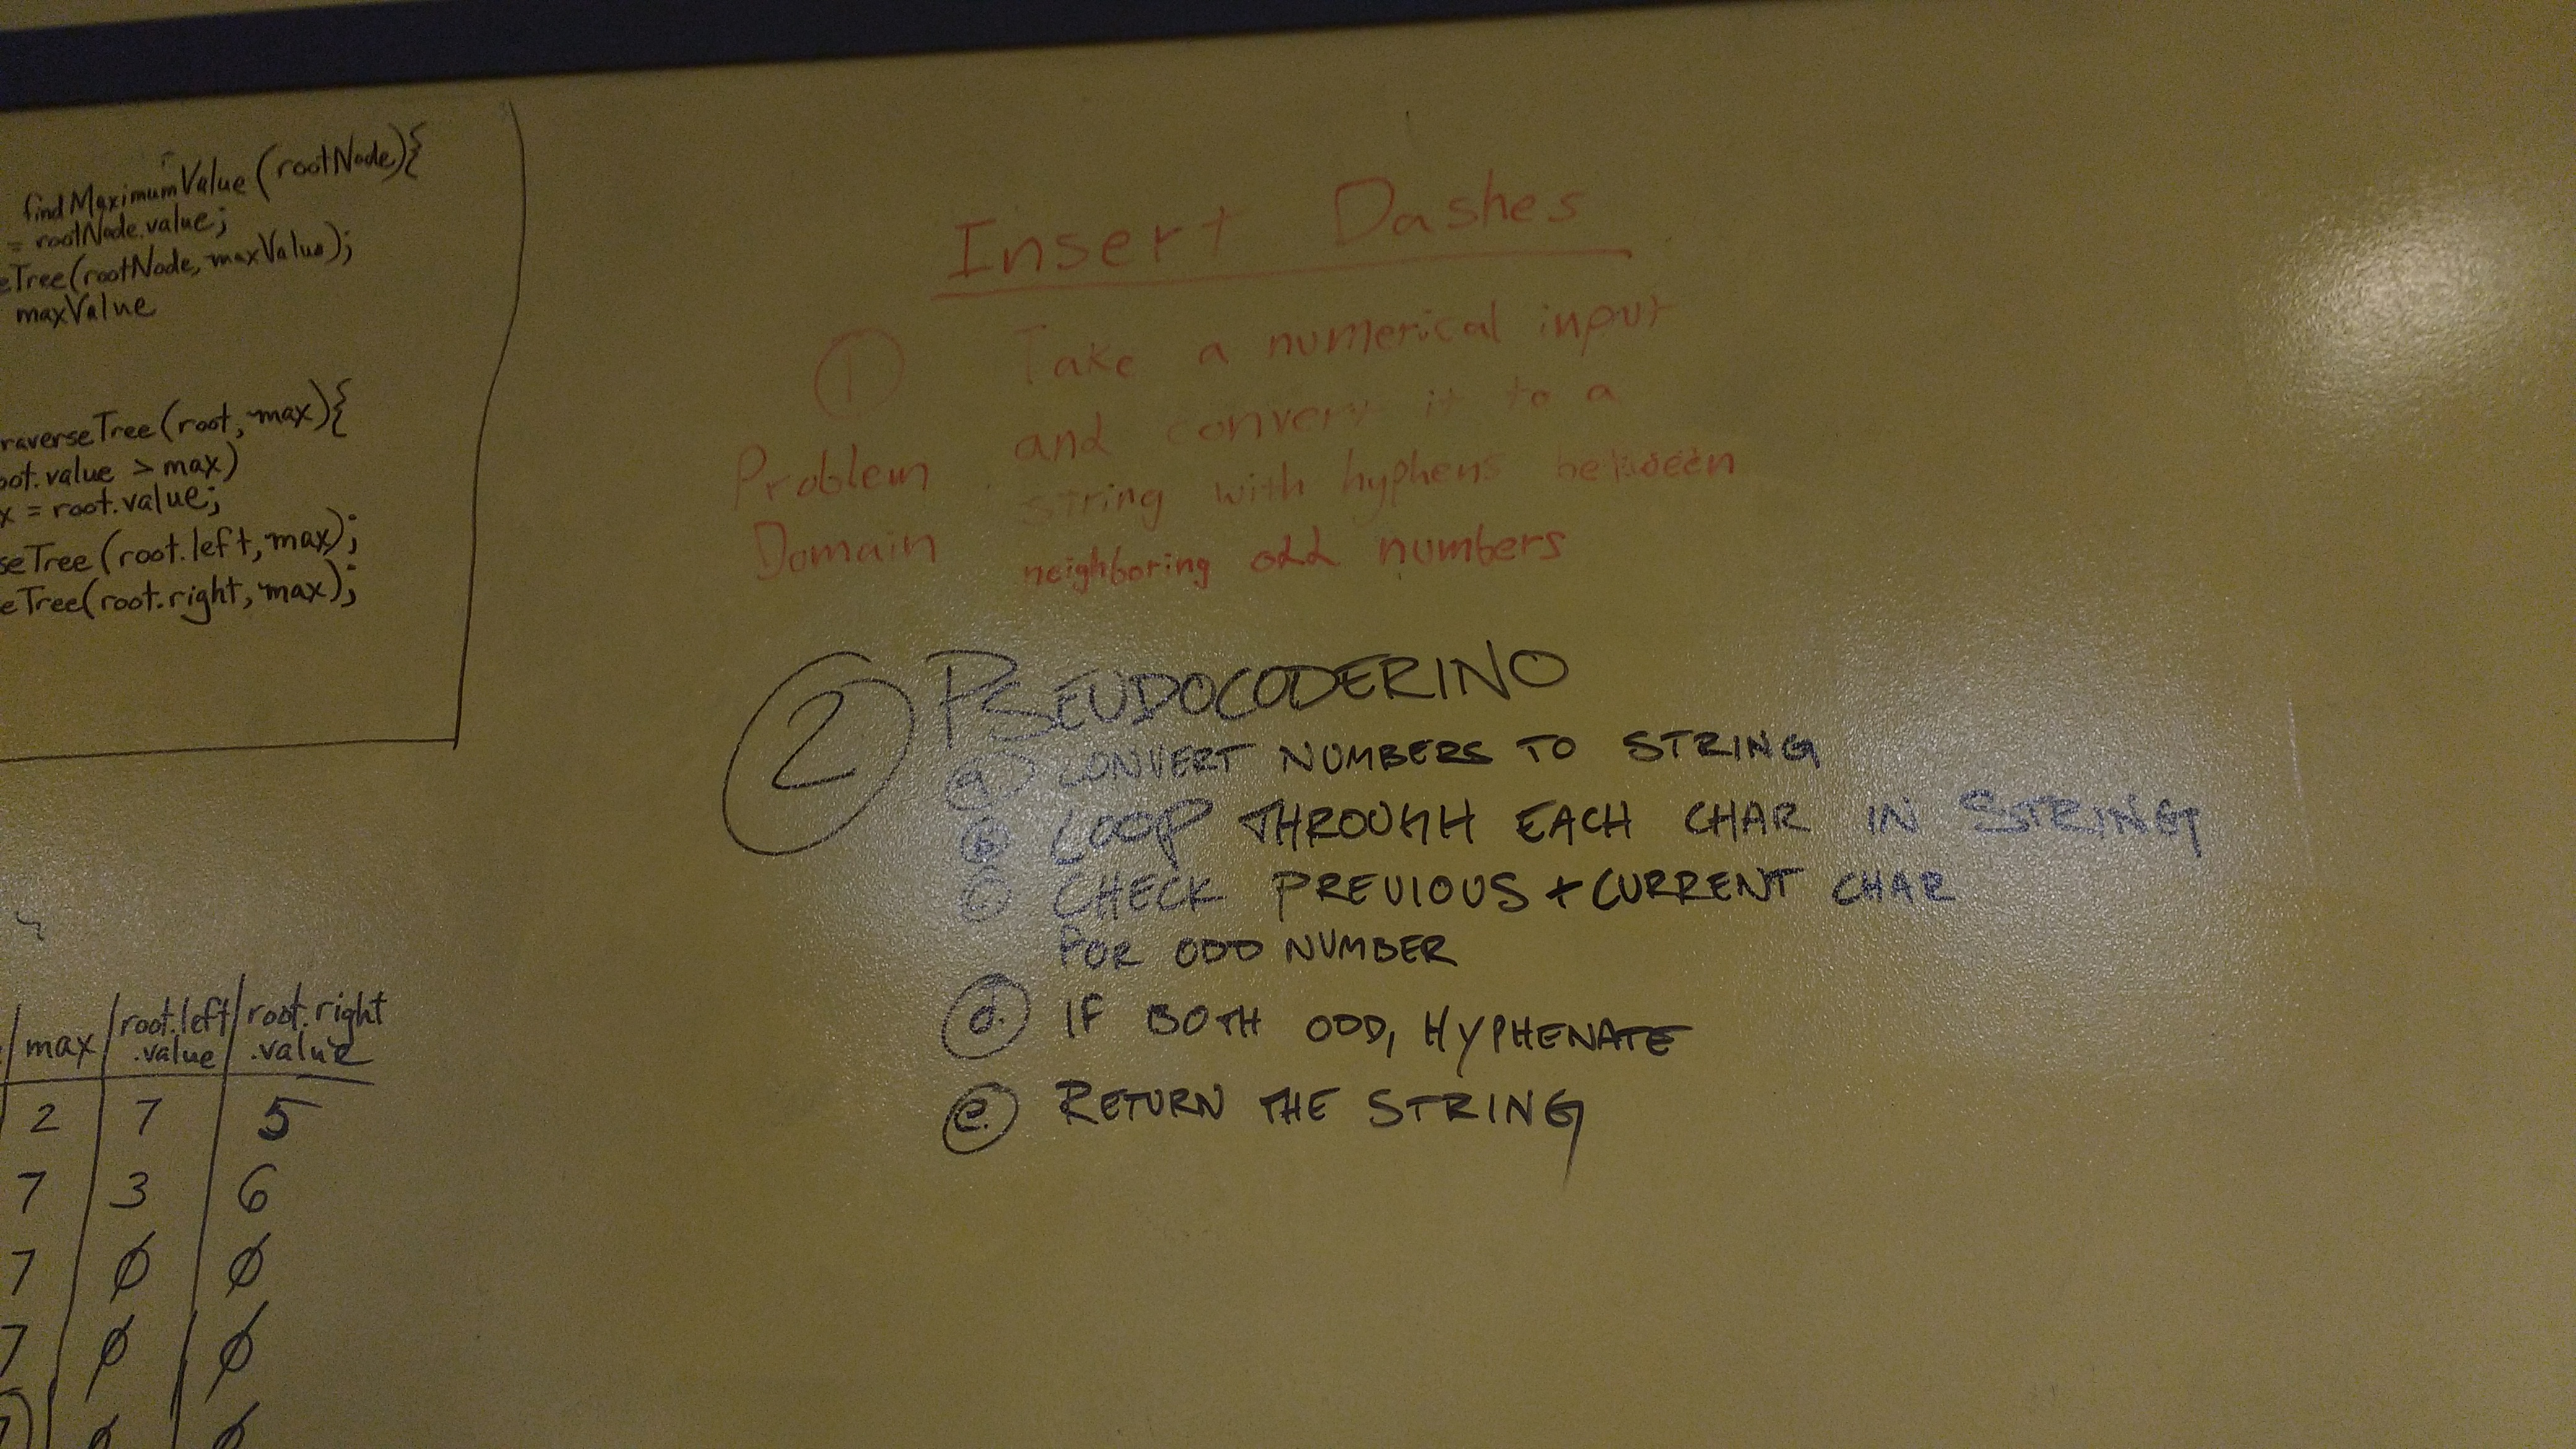 findMaximumValue(rootNode){
= rootNode.value;
eTree(rootNode, maxValue);
maxValue
raverseTree(root, max){
oot.value > max)
x = root.value;
seTree(root.left, max);
eTree(root.right, max);
max root.left.value root.right.value
2 7 5
7 3 6
7 ∅ ∅
7 ∅ ∅
∅ ∅
Insert Dashes
① Take a numerical input
and convert it to a
Problem string with hyphens between
Domain neighboring odd numbers
② PSEUDOCODERINO
ⓐ CONVERT NUMBERS TO STRING
ⓑ LOOP THROUGH EACH CHAR IN STRING
ⓒ CHECK PREVIOUS + CURRENT CHAR
FOR ODD NUMBER
ⓓ. IF BOTH ODD, HYPHENATE
ⓔ. RETURN THE STRING